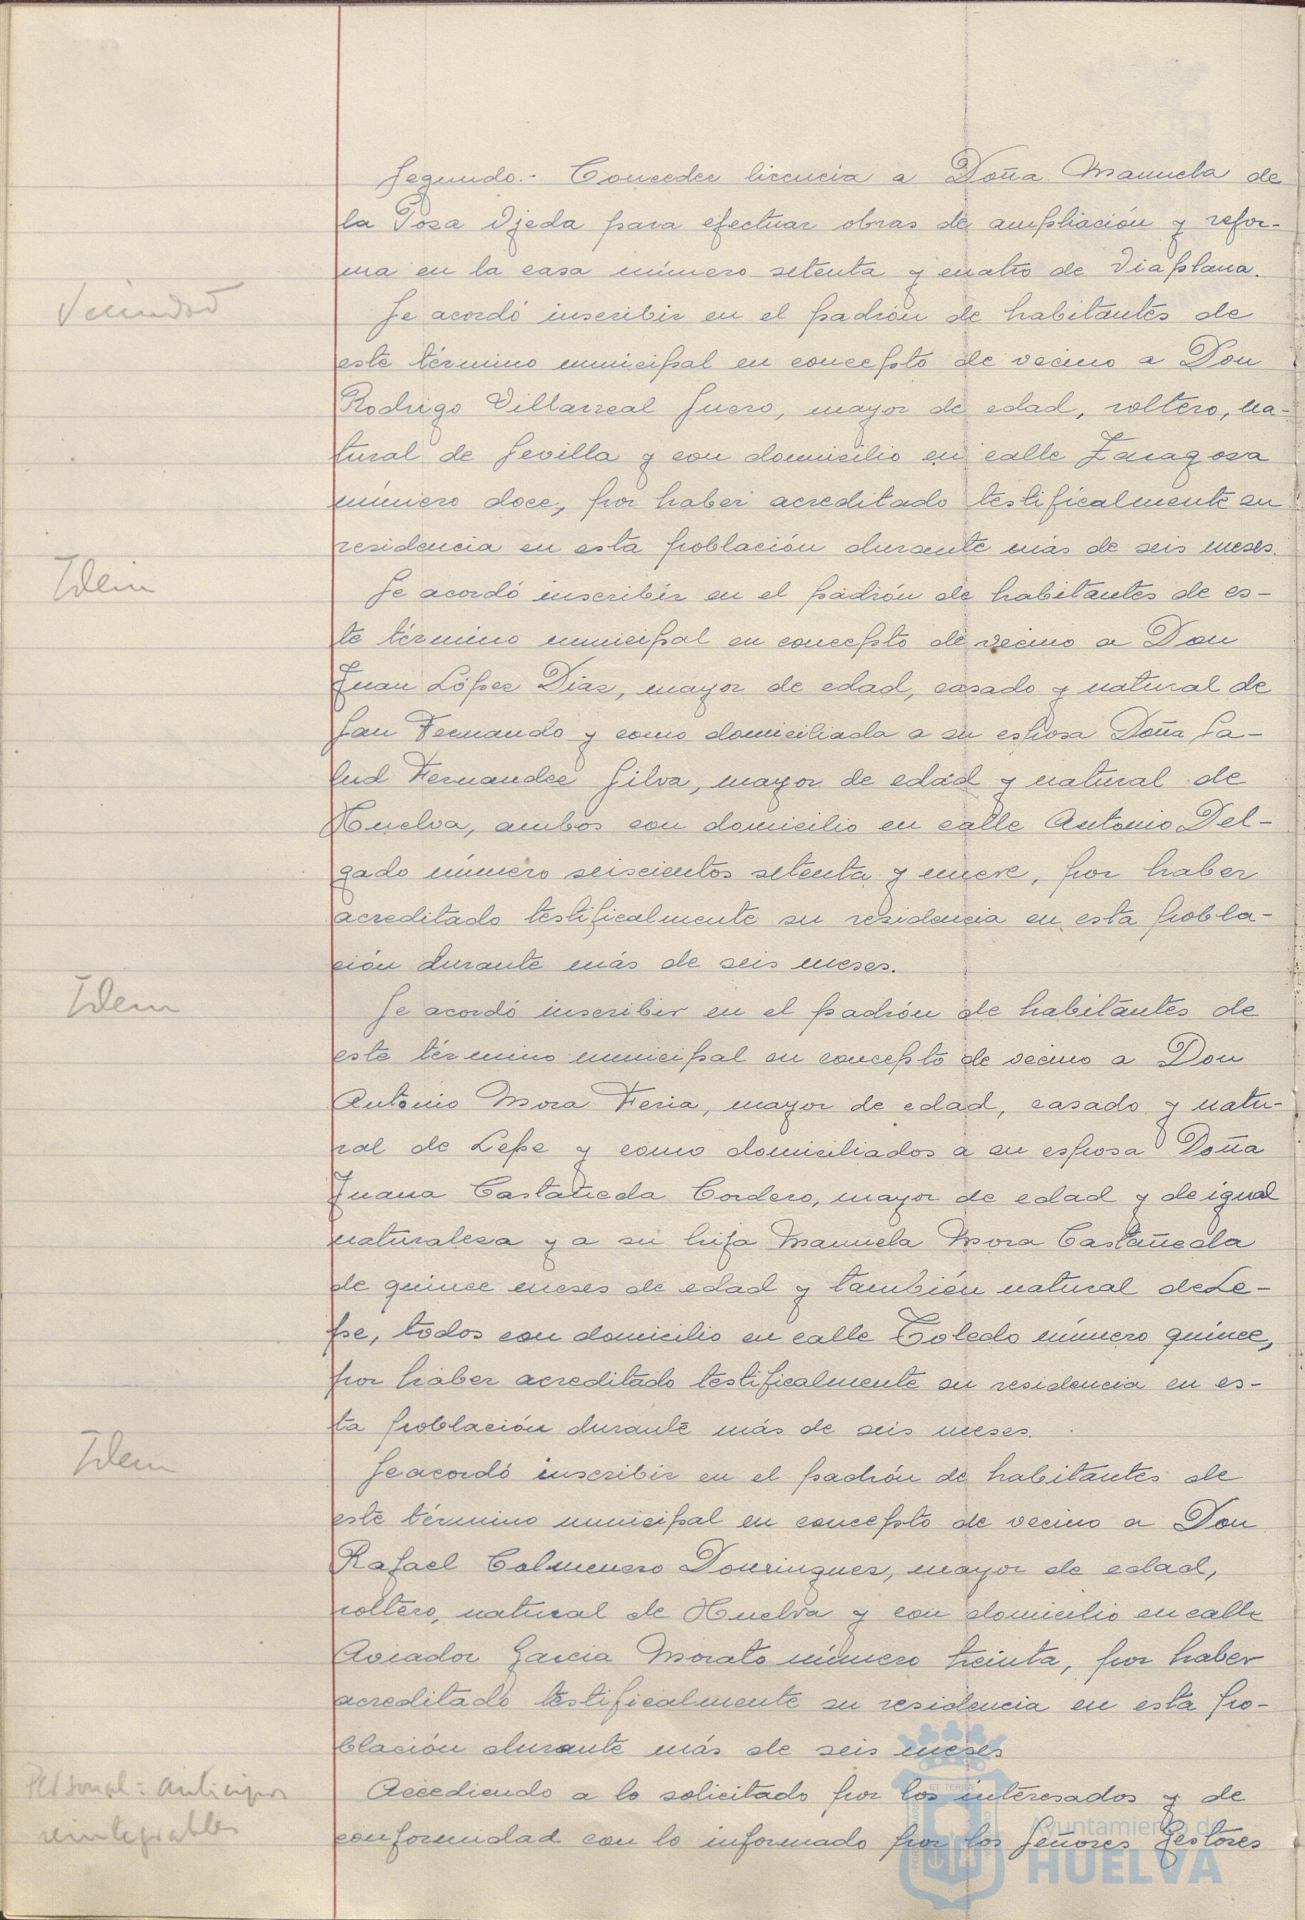 Segundo.- Conceder licencia a Doña Manuela de
la Posa Ojeda para efectuar obras de ampliación y refor-
ma en la casa número setenta y cuatro de Viaplana.
Vecindad
Se acordó inscribir en el padrón de habitantes de
este término municipal en concepto de vecino a Don
Rodrigo Villarreal Suero, mayor de edad, soltero, na-
tural de Sevilla y con domicilio en calle Zaragoza
número doce, por haber acreditado testificalmente su
residencia en esta población durante más de seis meses.
Idem
Se acordó inscribir en el padrón de habitantes de es-
te término municipal en concepto de vecino a Don
Juan López Diaz, mayor de edad, casado y natural de
San Fernando y como domiciliada a su esposa Doña Sa-
lud Fernandez Silva, mayor de edad y natural de
Huelva, ambos con domicilio en calle Antonio Del-
gado número seiscientos setenta y nueve, por haber
acreditado testificalmente su residencia en esta pobla-
ción durante más de seis meses.
Idem
Se acordó inscribir en el padrón de habitantes de
este término municipal en concepto de vecino a Don
Antonio Mora Feria, mayor de edad, casado y natu-
ral de Lepe y como domiciliados a su esposa Doña
Juana Castañeda Cordero, mayor de edad y de igual
naturaleza y a su hija Manuela Mora Castañeda
de quince meses de edad y también natural de Le-
pe, todos con domicilio en calle Toledo número quince,
por haber acreditado testificalmente su residencia en es-
ta población durante más de seis meses.
Idem
Se acordó inscribir en el padrón de habitantes de
este término municipal en concepto de vecino a Don
Rafael Colmenero Dominguez, mayor de edad,
soltero, natural de Huelva y con domicilio en calle
Aviador Garcia Morato número treinta, por haber
acreditado testificalmente su residencia en esta po-
blación durante más de seis meses
Personal: anticipos
reintegrables
Accediendo a lo solicitado por los interesados y de
conformidad con lo informado por los Señores Gestores
Ayuntamiento de
HUELVA